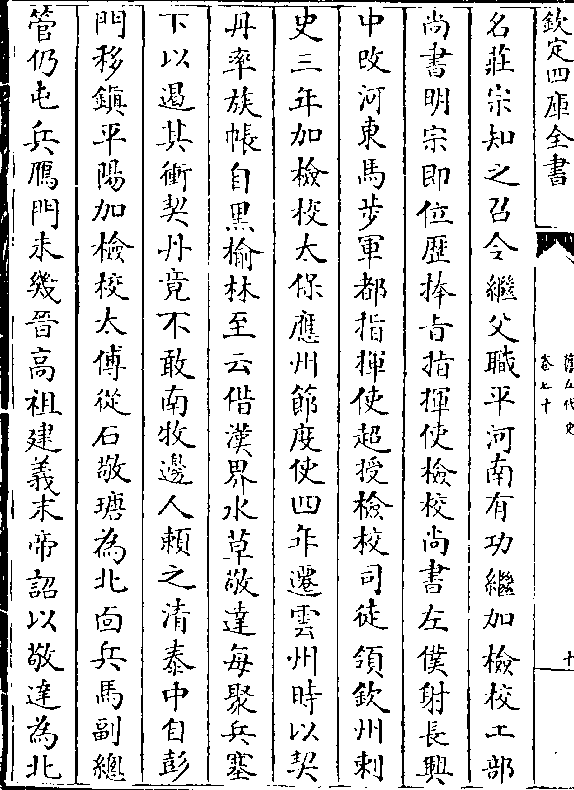 欽定四庫全書
舊五代史
卷七十
十
名莊宗知之召令繼父職平河南有功繼加檢校工部
尚書明宗即位歷捧㫖指揮使檢校尚書左僕射長興
中改河東馬步軍都指揮使超授檢校司徒領欽州刺
史三年加檢校太保應州節度使四年遷雲州時以契
丹率族帳自黑榆林至云借漢界水草敬達每聚兵塞
下以遏其衝契丹竟不敢南牧邊人賴之清泰中自彭
門移鎮平陽加檢校太傅從石敬瑭為北面兵馬副總
管仍屯兵鴈門未幾晉高祖建義末帝詔以敬達為北